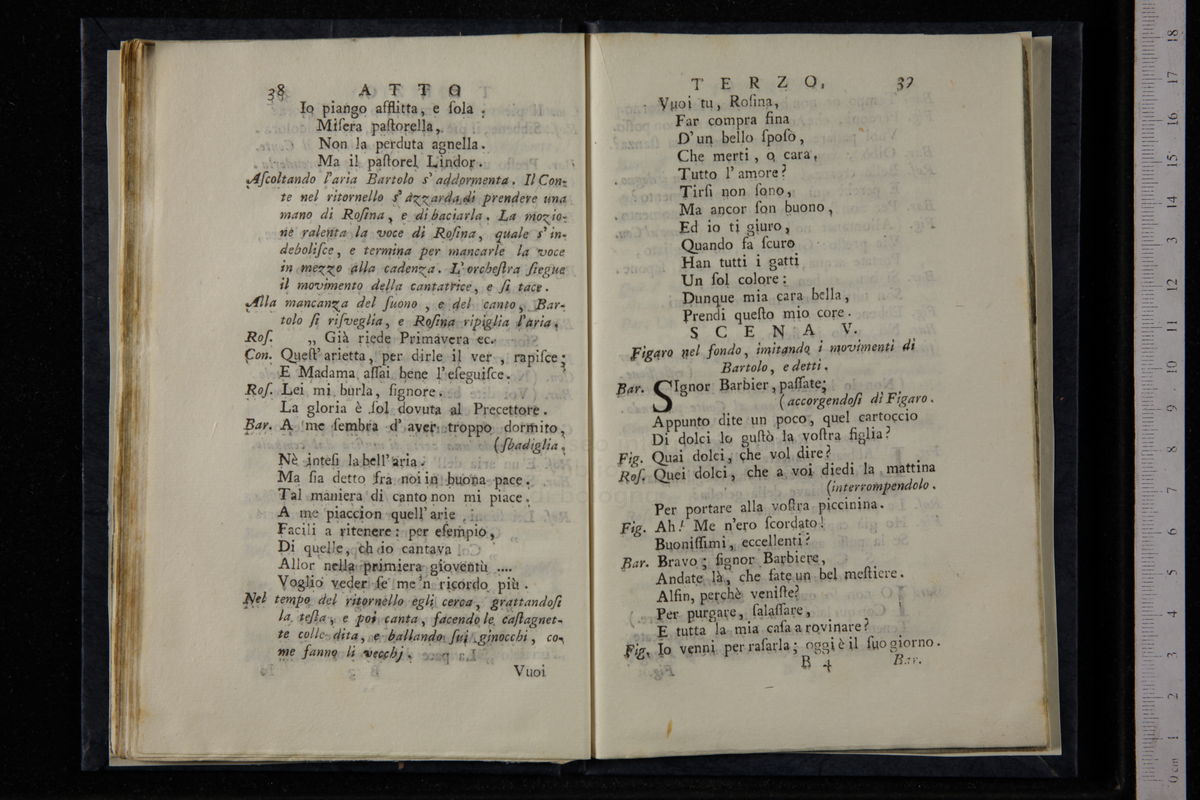 38 ATTO
Io piango afflitta, e ſola.
Miſera paſtorella,
Non la perduta agnella.
Ma il paſtorel Lindor.
Aſcoltando l'aria Bartolo s'addormenta. Il Con-
te nel ritornello s'azzarda di prendere una
mano di Roſina, e di baciarla. La mozio-
ne ralenta la voce di Roſina, quale s'in-
deboliſce, e termina per mancarle la voce
in mezzo alla cadenza. L'orcheſtra ſiegue
il movimento della cantatrice, e ſi tace.
Alla mancanza del ſuono, e del canto, Bar-
tolo ſi riſveglia, e Roſina ripiglia l'aria.
Roſ. „ Già riede Primavera ec.
Con. Queſt'arietta, per dirle il ver, rapiſce;
E Madama aſſai bene l'eſeguiſce.
Roſ. Lei mi burla, ſignore.
La gloria è ſol dovuta al Precettore.
Bar. A me ſembra d'aver troppo dormito,
(ſbadiglia.
Nè inteſi la bell'aria.
Ma ſia detto fra noi in buona pace.
Tal maniera di canto non mi piace.
A me piaccion quell'arie
Facili a ritenere: per eſempio,
Di quelle, ch io cantava
Allor nella primiera gioventù ....
Voglio veder ſe me'n ricordo più.
Nel tempo del ritornello egli cerca, grattandoſi
la teſta, e poi canta, facendo le caſtagnet-
te colle dita, e ballando ſui ginocchi, co-
me fanno li vecchj.
Vuoi
TERZO. 37
Vuoi tu, Roſina,
Far compra fina
D'un bello ſpoſo,
Che merti, o cara,
Tutto l'amore?
Tirſi non ſono,
Ma ancor ſon buono,
Ed io ti giuro,
Quando fa ſcuro
Han tutti i gatti
Un ſol colore:
Dunque mia cara bella,
Prendi queſto mio core.
SCENA V.
Figaro nel fondo, imitando i movimenti di
Bartolo, e detti.
Bar. SIgnor Barbier, paſſate;
(accorgendoſi di Figaro.
Appunto dite un poco, quel cartoccio
Di dolci lo guſtò la voſtra figlia?
Fig. Quai dolci, che vol dire?
Roſ. Quei dolci, che a voi diedi la mattina
(interrompendolo.
Per portare alla voſtra piccinina.
Fig. Ah! Me n'ero ſcordato!
Buoniſſimi, eccellenti?
Bar. Bravo; ſignor Barbiere,
Andate là, che fate un bel meſtiere.
Alfin, perchè veniſte?
Per purgare, ſalaſſare,
E tutta la mia caſa a rovinare?
Fig. Io venni per raſarla; oggi è il ſuo giorno.
B 4 Bar.